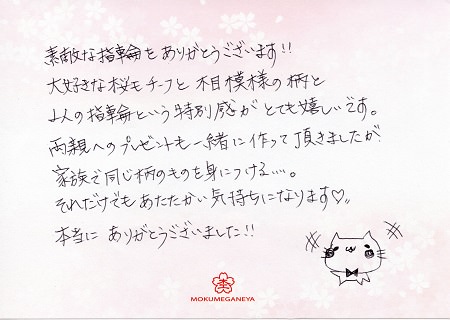 素敵な指輪をありがとうございます!!
大好きな桜モチーフと木目模様の柄と
2人の指輪という特別感がとても嬉しいです。
両親へのプレゼントも一緒に作って頂きましたが
家族で同じ柄のものを身につける…。
それだけでもあたたかい気持ちになります♡
本当に ありがとうございました!!
MOKUMEGANEYA